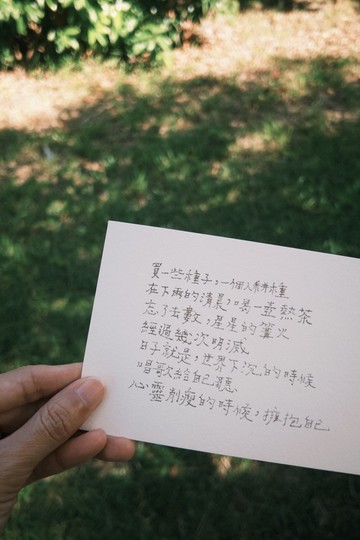 買一些種子，一個人種種
在下雨的清晨，喝一壺熱茶
忘了去數，星星的篝火
經過幾次明滅
日子就是，世界下沉的時候
唱歌給自己聽
心靈削瘦的時候，擁抱自己